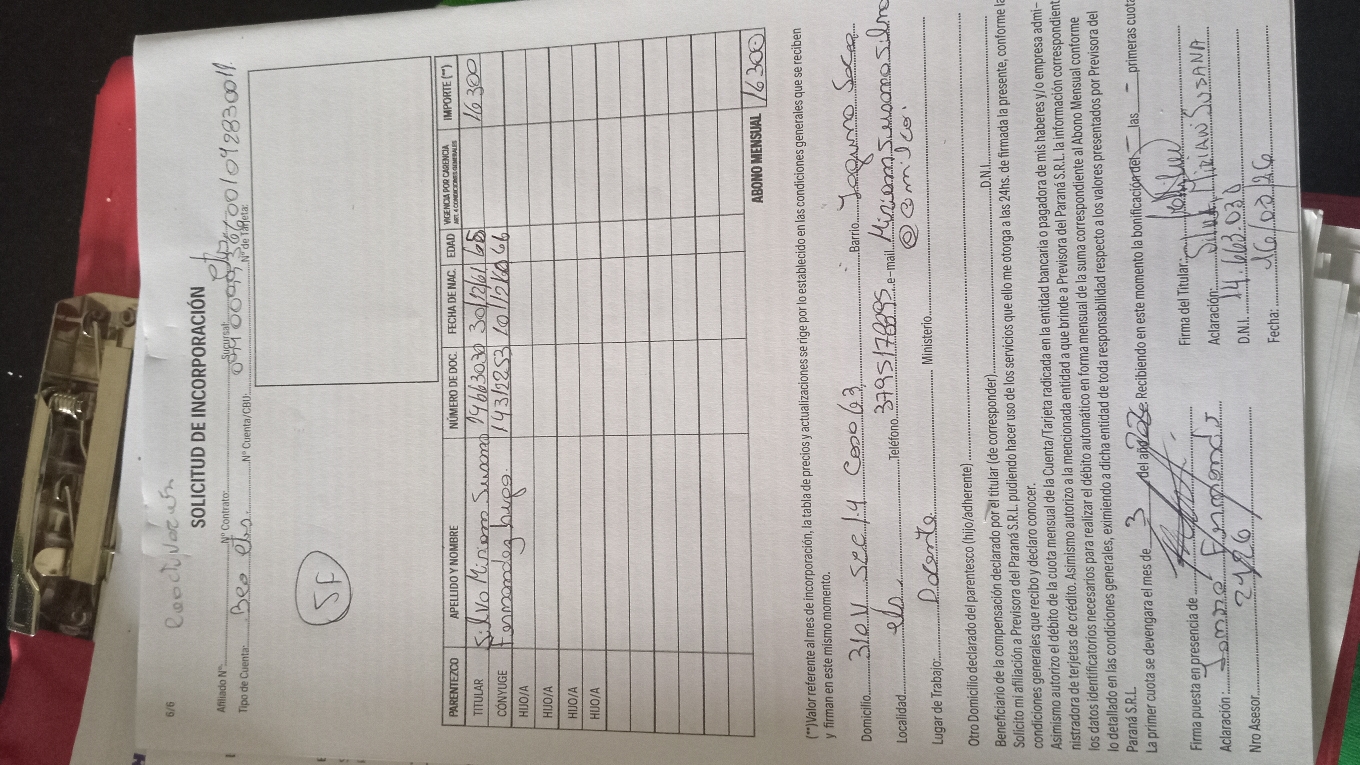 reactivación
6/6
SOLICITUD DE INCORPORACIÓN
Afiliado N°: Nº Contrato: Sucursal:
Tipo de Cuenta: Nº Cuenta/CBU: Nº de Tarjeta:
5F
PARENTEZCO APELLIDO Y NOMBRE NÚMERO DE DOC. FECHA DE NAC. EDAD VIGENCIA POR CARENCIA ART. 4 CONDICIONES GENERALES IMPORTE (**)
TITULAR Silva Miriam Susana 14663030 30/12/61 16300
CÓNYUGE Fernandez hugo 14312253 66
HIJO/A
HIJO/A
HIJO/A
HIJO/A
ABONO MENSUAL 16300
(**)Valor referente al mes de incorporación, la tabla de precios y actualizaciones se rige por lo establecido en las condiciones generales que se reciben
y firman en este mismo momento.
Domicilio Sec 14 Casa 63 Barrio
Localidad Teléfono e-mail Miriam Susana Silva
@ mil co.
Lugar de Trabajo: Docente Ministerio
Otro Domicilio declarado del parentesco (hijo/adherente)
Beneficiario de la compensación declarado por el titular (de corresponder) D.N.I.
Solicito mi afiliación a Previsora del Paraná S.R.L. pudiendo hacer uso de los servicios que ello me otorga a las 24hs. de firmada la presente, conforme la
condiciones generales que recibo y declaro conocer.
Asimismo autorizo el débito de la cuota mensual de la Cuenta/Tarjeta radicada en la entidad bancaria o pagadora de mis haberes y/o empresa admi-
nistradora de terjetas de crédito. Asimismo autorizo a la mencionada entidad a que brinde a Previsora del Paraná S.R.L. la información correspondient
los datos identificatorios necesarios para realizar el débito automático en forma mensual de la suma correspondiente al Abono Mensual conforme
lo detallado en las condiciones generales, eximiendo a dicha entidad de toda responsabilidad respecto a los valores presentados por Previsora del
Paraná S.R.L
La primer cuota se devengara el mes de 3 del año Recibiendo en este momento la bonificación de las primeras cuota
Firma puesta en presencia de Firma del Titular:
Aclaración: Aclaración: Silva MIRIAN SUSANA
Nro Asesor D.N.I. 14.663.030
Fecha: 16/02/26